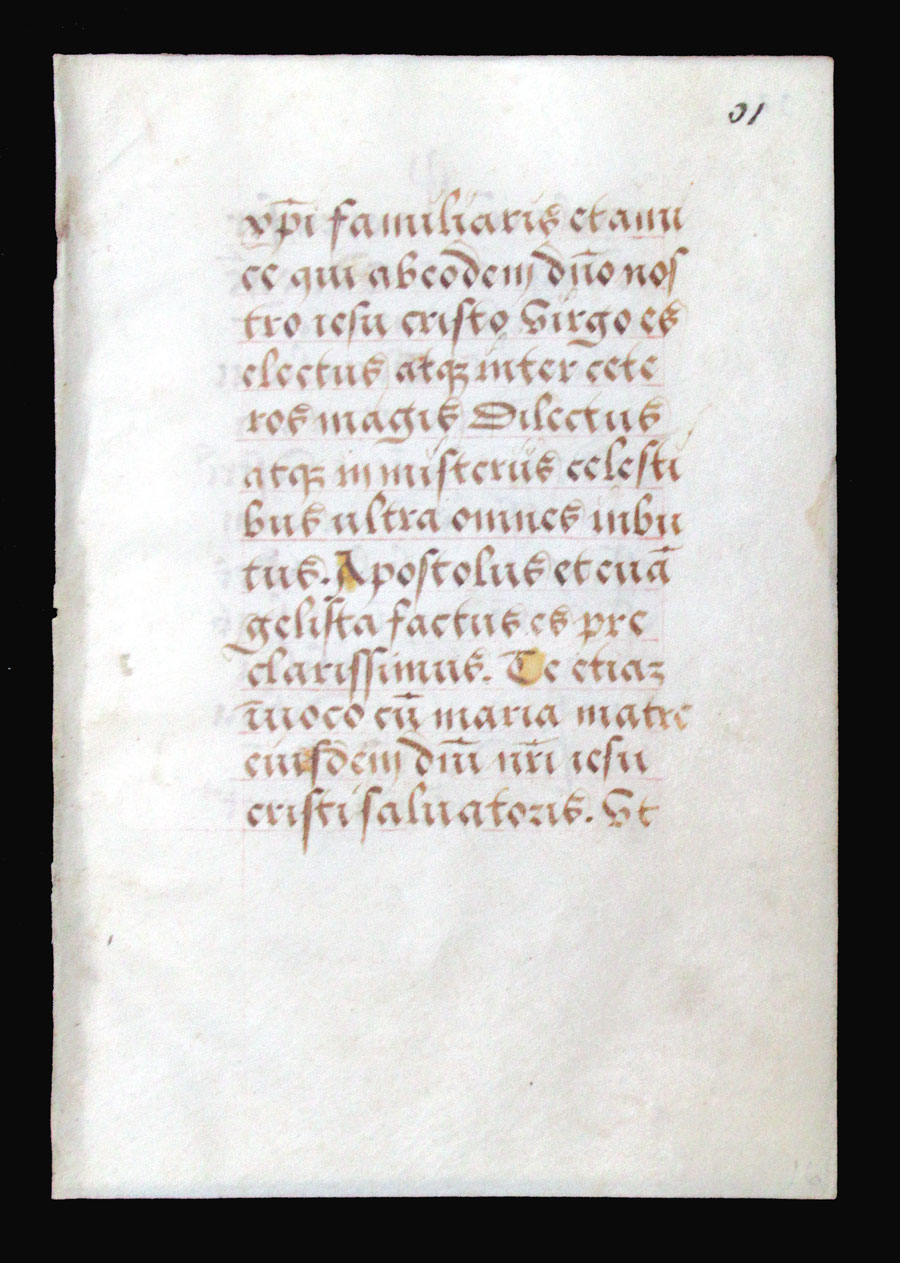 31
xp̄i familiaris et ami
ce qui ab eodem dn̄o nos
tro iesu cristo Virgo es
electus atqꝫ inter cete
ros magis Dilectus
atqꝫ in misteriis celesti
bus ultra omnes inbu
tus. Apostolus et euā
gelista factus es pre
clarissimus. Te etiaꝫ
īuoco cū maria matre
eiusdem dn̄i nr̄i iesu
cristi saluatoris. Vt